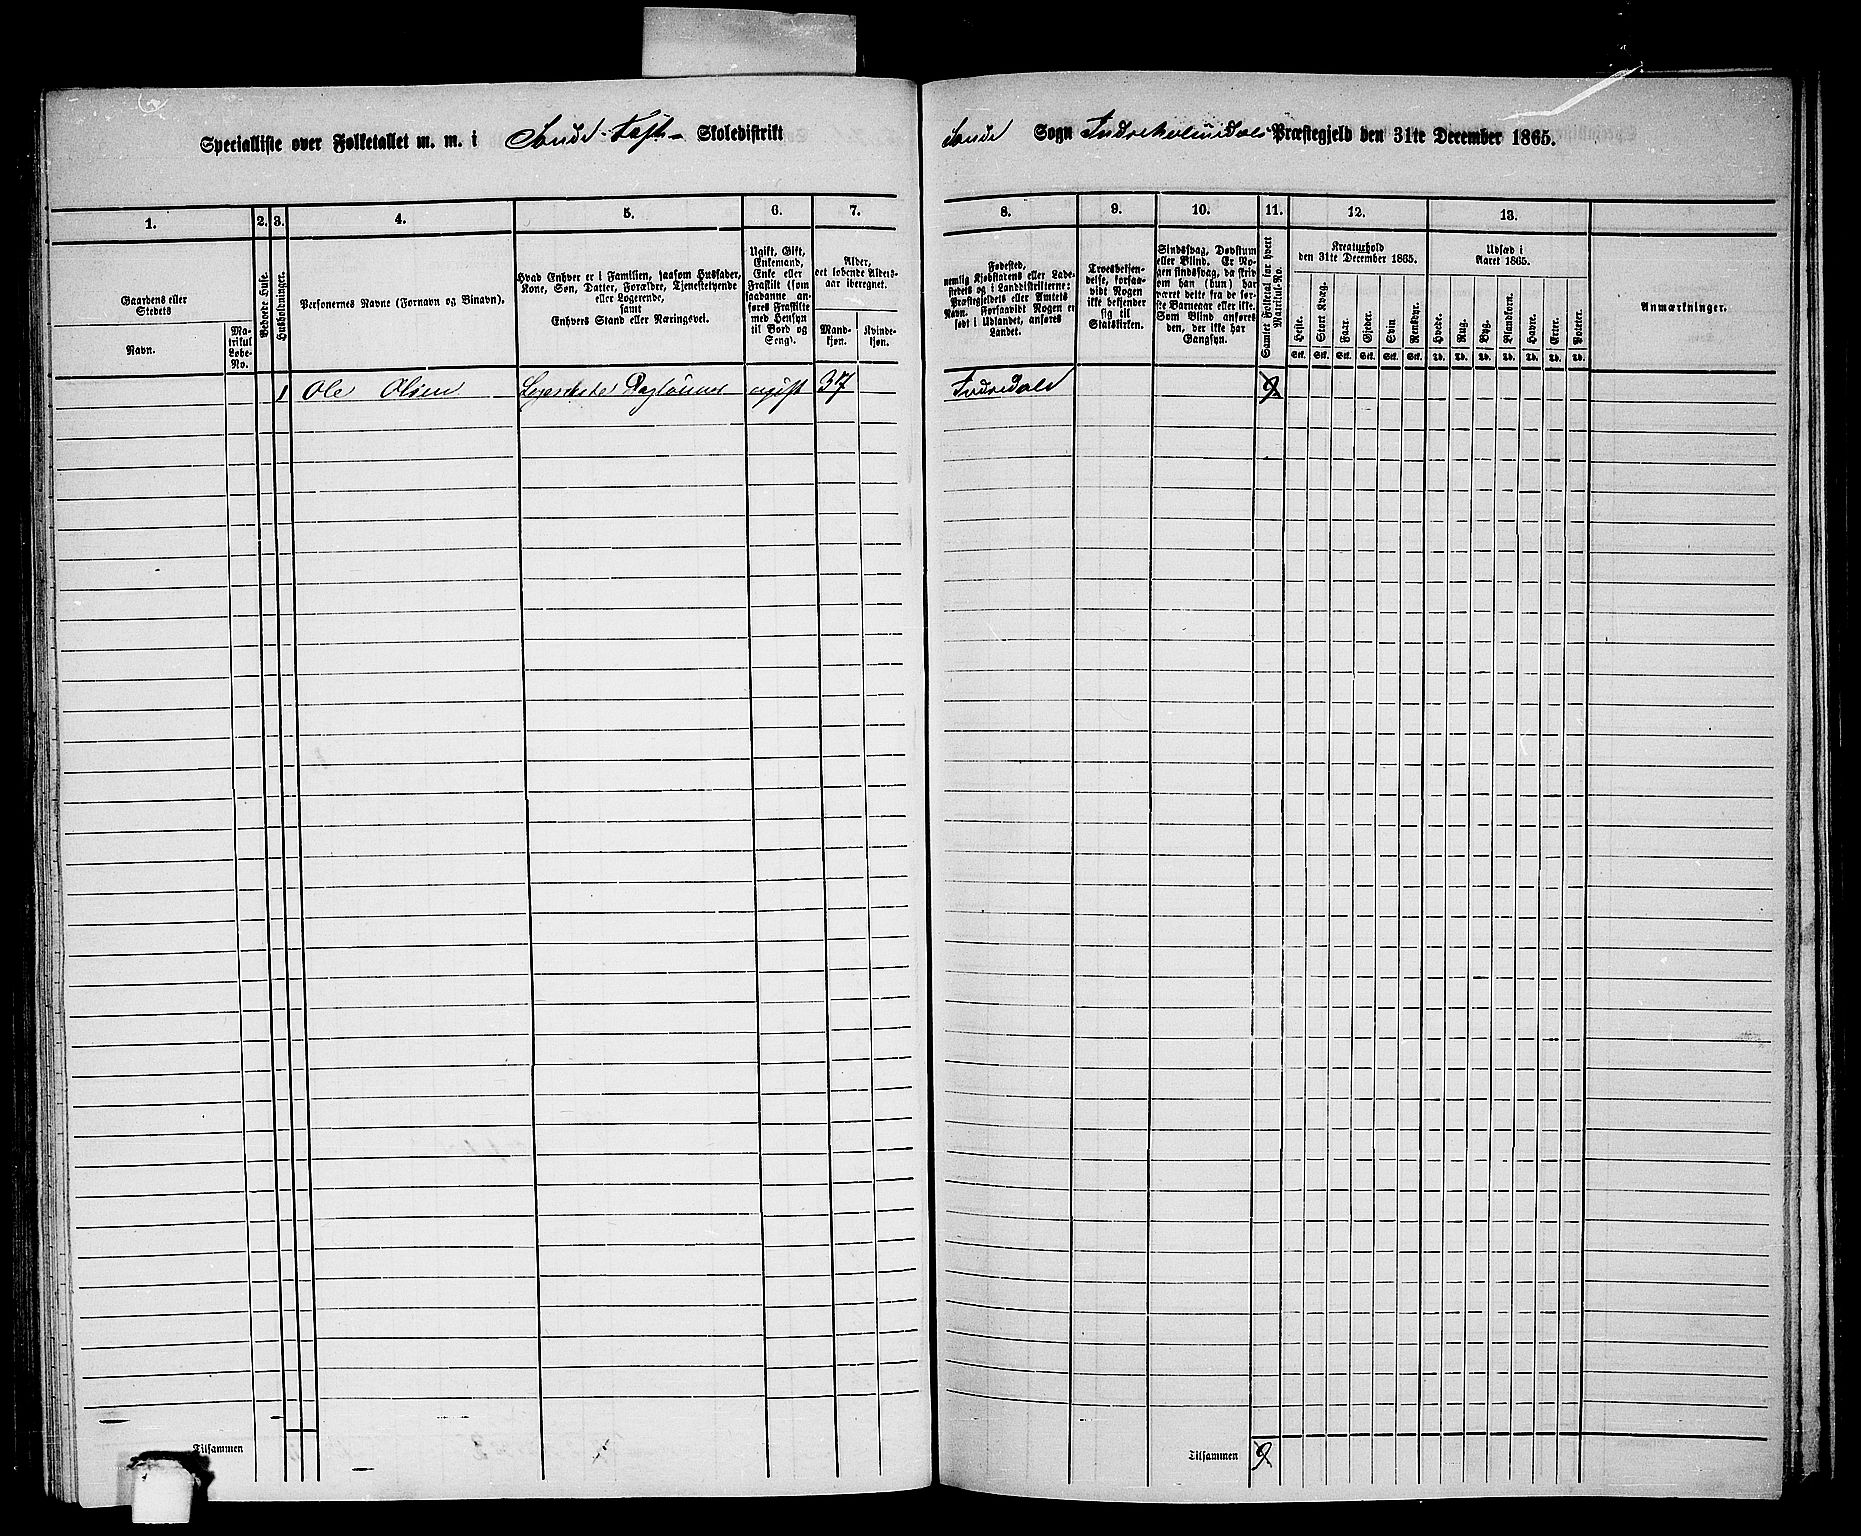 Specialliste over Folketallet m. m. i Sande Skoledistrikt
Sande Sogn Præstegjeld den 31te December 1865.
1. 2. 3. 4. 5. 6. 7.
8. 9. 10. 11. 12. 13.
Gaardens eller
Stedets
Navn.
Ma-
trikul
Løbe-
No.
Beboede Huse.
Husholdninger.
Personernes Navne (Fornavn og Binavn).
Hvad Enhver er i Familien, saasom Husfader,
Kone, Søn, Datter, Forældre, Tjenestetyende
eller Logerende,
samt
Enhvers Stand eller Næringsvei.
Ugift, Gift,
Enkemand,
Enke eller
Fraskilt (som
saadanne an-
føres Fraskilte
med Hensyn
til Bord og
Seng).
Alder,
det løbende Alders-
aar iberegnet.
Mand-
kjøn.
Kvinde-
kjøn.
Fødested,
nemlig Kjøbstadens eller Lade-
stedets og i Landdistrikterne:
Præstegjeldets eller Amtets
Navn. Forsaavidt Nogen er
født i Udlandet, anføres
Landet.
Troesbekjen-
delse, forsaa-
vidt Nogen
ikke bekjender
sig til
Statskirken.
Sindssvag, Døvstum
eller Blind. Er No-
gen sindssvag, da skriv
om han (hun) har
været dette fra de før-
ste Barneaar eller ikke.
Som Blind anføres
den, der ikke har
Gangsyn.
Samlet Folketal for hvert
Matrikul-No.
Kreaturhold
den 31te December 1865.
Heste.
Stort Kvæg.
Faar.
Gjeder.
Svin
Rensdyr.
Stk. Stk. Stk. Stk. Stk. Stk.
Udsæd i
Aaret 1865.
Hvede.
Rug.
Byg.
Blandkorn.
Havre.
Erter.
Poteter.
Td. Td. Td. Td. Td. Td. Td.
Anmærkninger.
1 Ole Olsen ugift 37
Tilsammen
Tilsammen